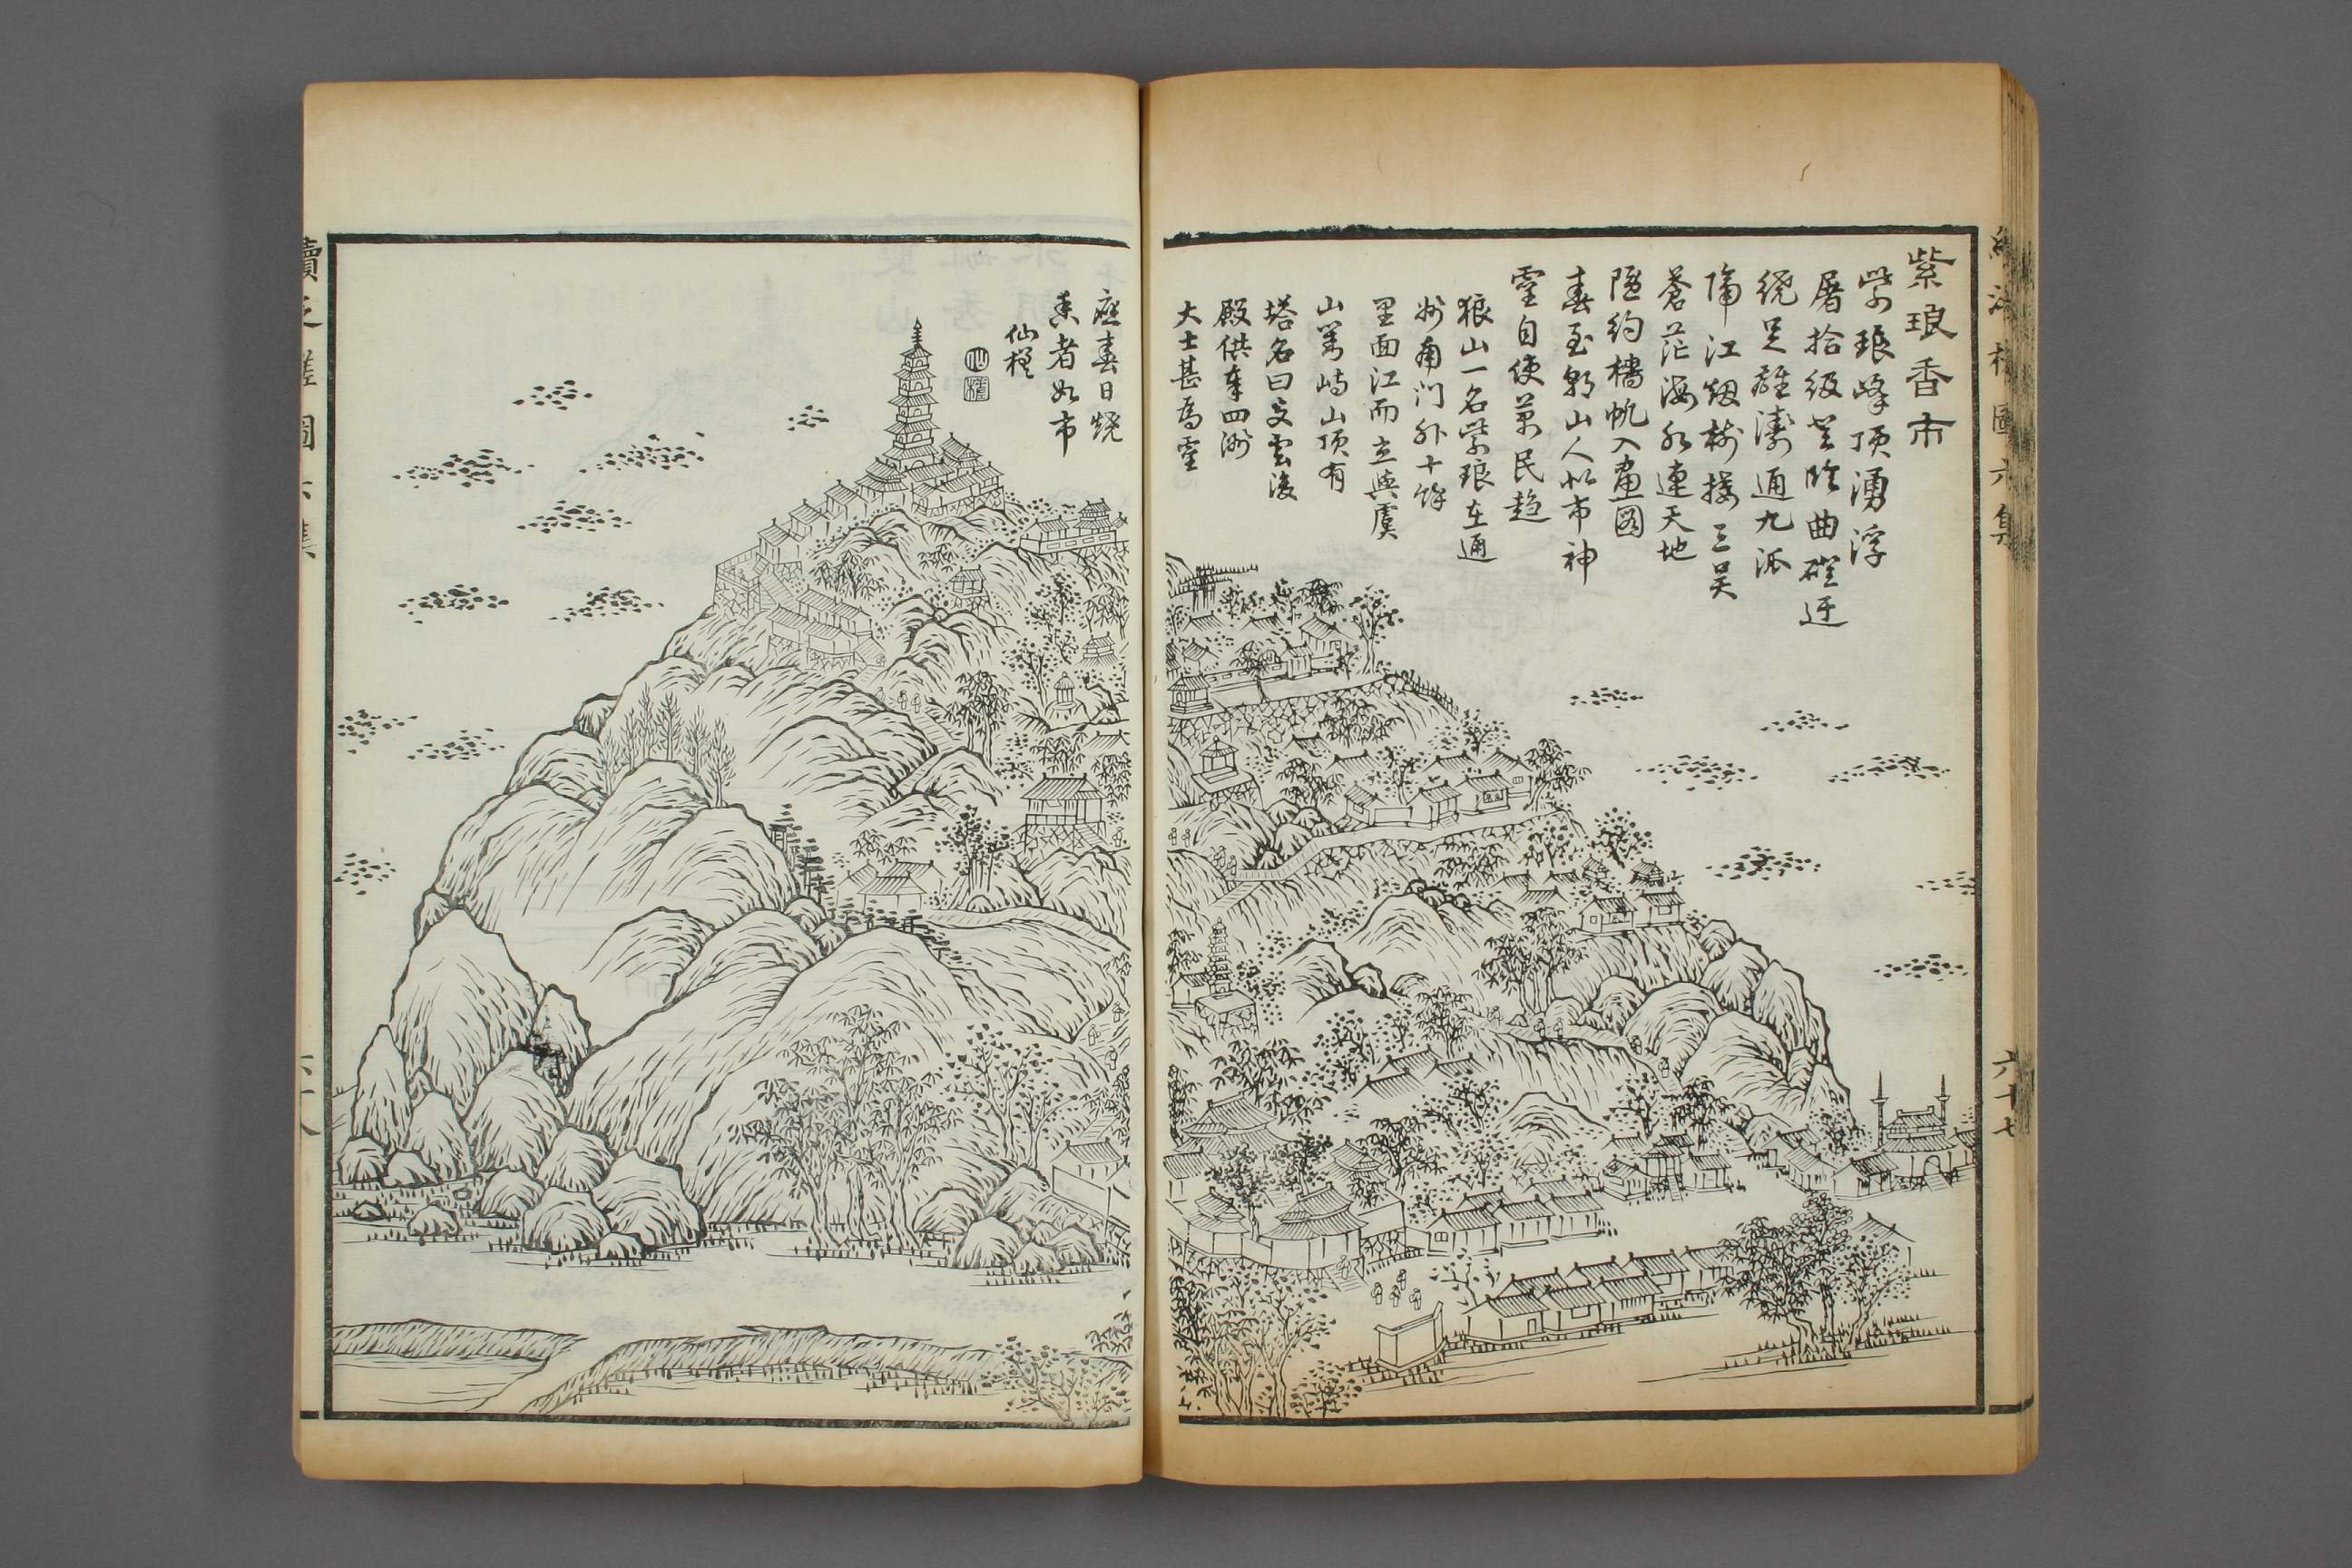 紫琅香市
紫琅峰頂湧浮
屠拾級登臨曲磴迂
繞足離濤通九派
隔江烟樹接三吴
蒼茫海水連天地
隱約檣帆入畫圖
春至朝山人似市神
靈自使萬民趨
狼山一名紫琅在通
州南门外十餘
里面江而立與虞
山對峙山顶有
塔名曰支雲後
殿供奉四洲
大士甚為靈
應春日燒
香者如市
仙槎
續泛槎圖六集
六十七
續泛槎圖六集